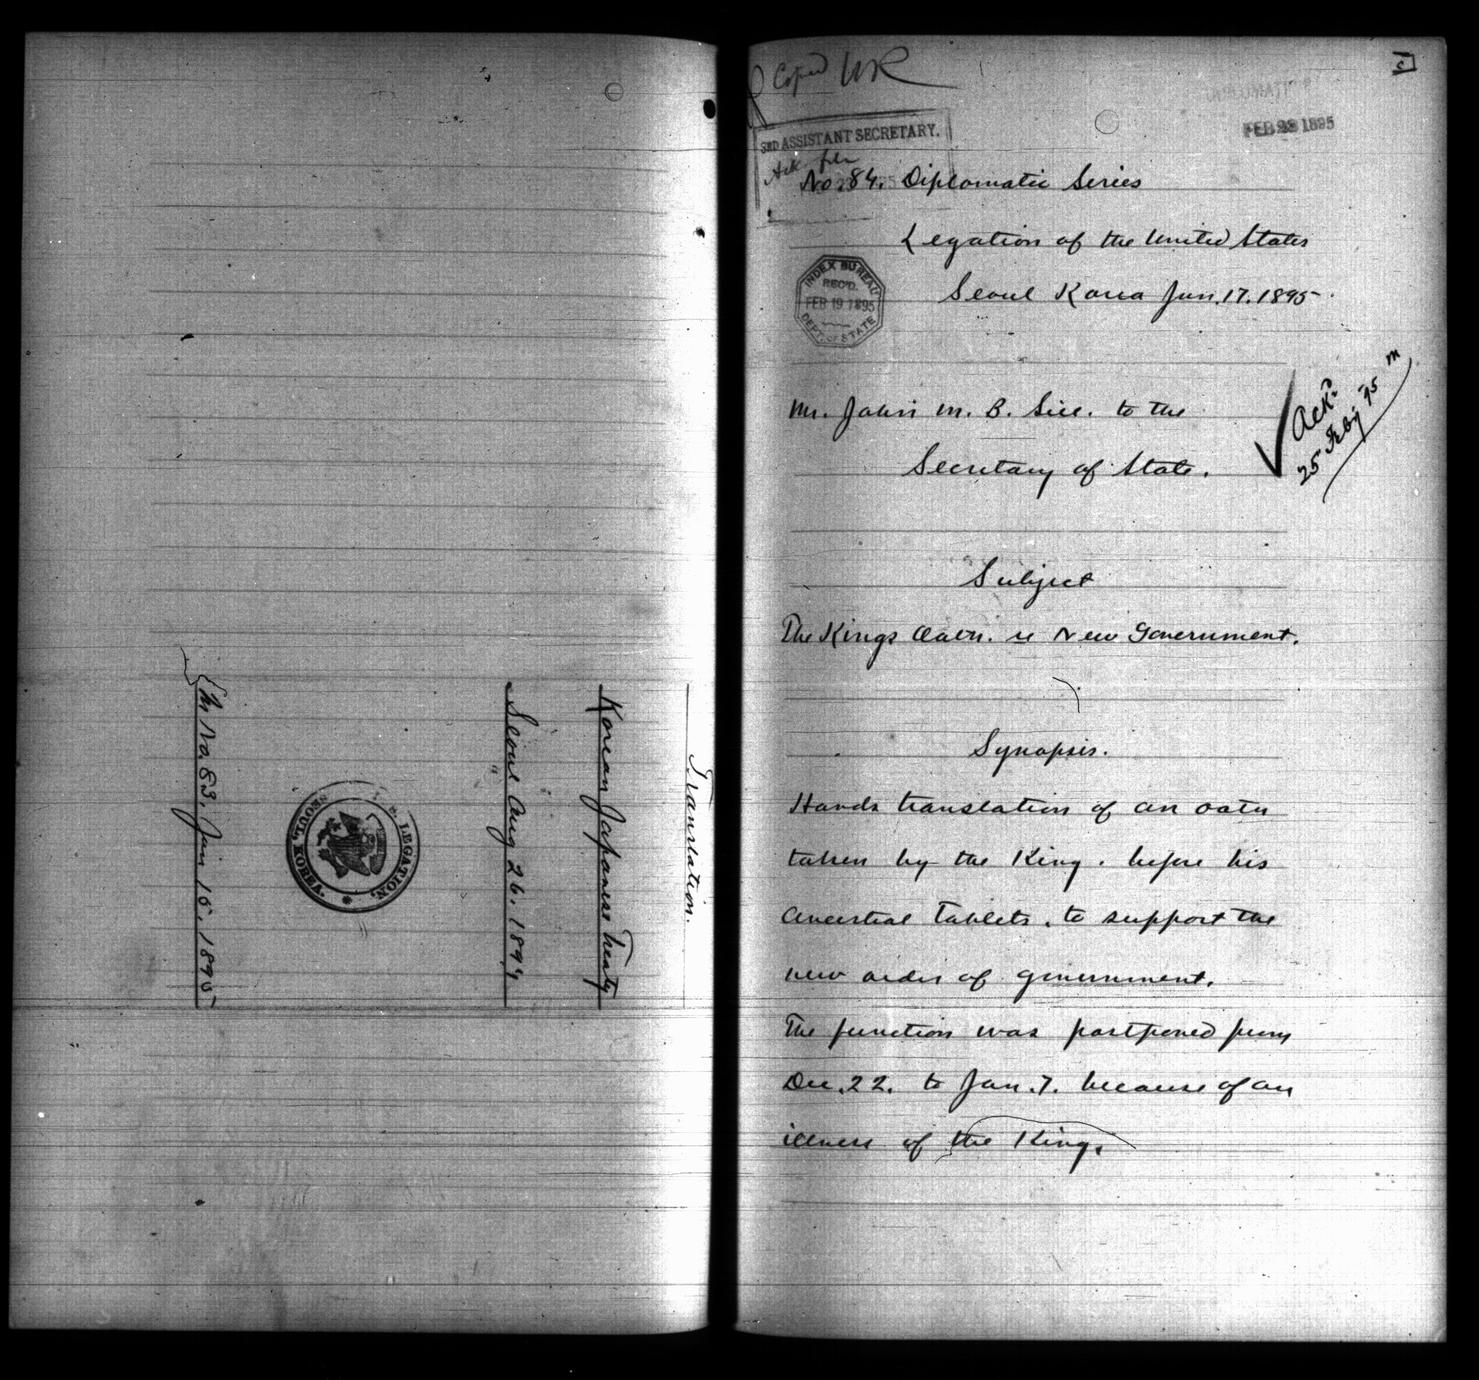 Translation.
Korean Japanese Treaty
Seoul Aug 26. 1894
U. S. LEGATION,
SEOUL, KOREA.
No 83. Jan 15, 1895
Copied
3RD ASSISTANT SECRETARY.
FEB 1895
No. 84. Diplomatic Series
Legation of the United States
Seoul Korea Jan. 17. 1895.
INDEX BUREAU
REC'D.
FEB 19 1895
DEPT. OF STATE
Mr. John M. B. Sill. to the
Secretary of State.
Ackd
25 Feby 95
Subject
The Kings Oath. re New Government.
Synopsis.
Hands translation of an oath
taken by the King. before his
ancestral Tablets. to support the
new order of government.
The function was postponed from
Dec. 22. to Jan. 7. because of an
illness of the King.